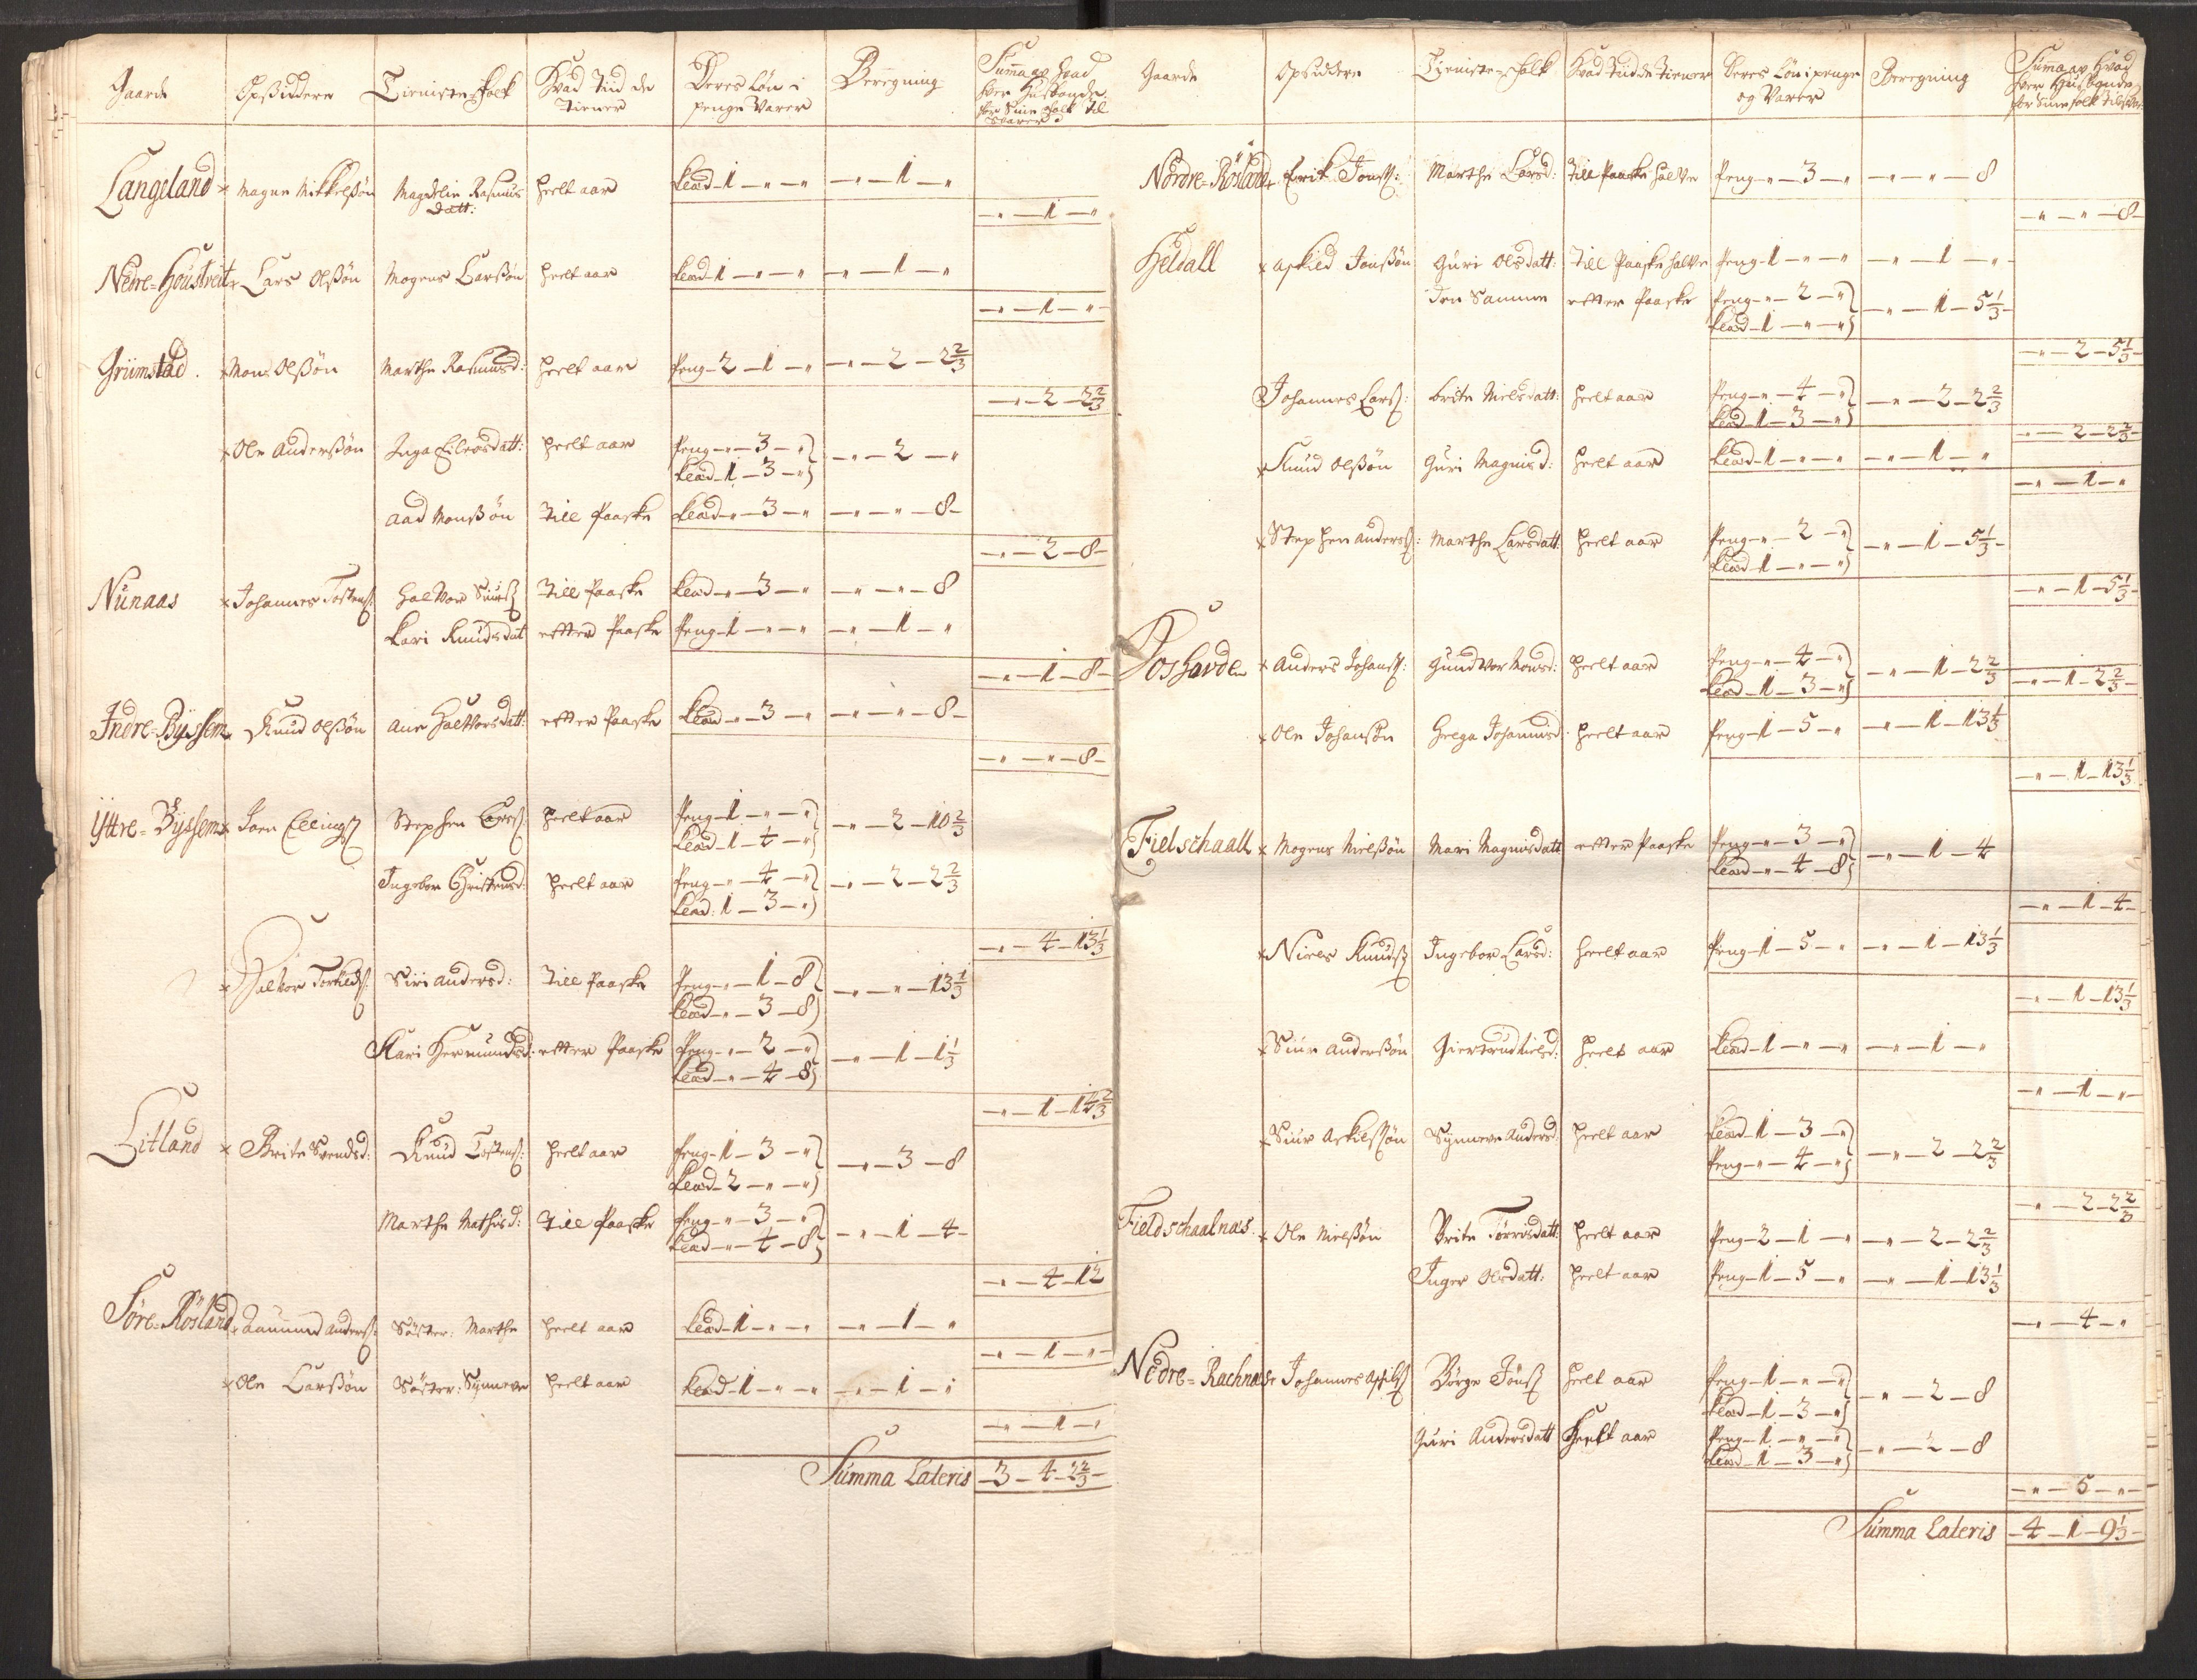 Gaarde Opsiddere Tieniste Folk Hvad Tiid de Tiener Deres Løn i penge Varer Beregning Summa af hvad hver Husbonde for Sine folk til Svarer
Langeland × Magne Mikkelßøn Magdelin Rasmus datt: heelt aar klæd-1-"-" -"-1-"
-"-1-"
Nedre-Houstveit × Lars Olßøn Mogens Larßøn heelt aar klæd-1-"-" -"-1-"
-"-1-"-
Grimstad . × Mons Olßøn Marthe Rasmusd: heelt aar Peng-2-1-" -"-2-2 2/3
-"-2-2 2/3
× Ole Anderßøn Inga Eilersdatt: heelt aar Peng-"-3-"
klæd-1-3-" -"-2-"
Aad Monßøn Till Paaske klæd-"-3-" -"-"-8-
-"-2-8-
Nunaas × Johannes Tostenß: Halvor Siurß Till Paaske klæd-"-3-" -"-"-8
Kari Knudsdat efter Paaske Peng-1-"-" -"-1-"
-"-1-8-
Indre-Byssem × Knud Olßøn Ane Halvorsdatt: efter Paaske klæd-"-3-" -"-"-8-
-"-"-8-
Yttre-Byssem × Joen Ellingß Stephen Larß: heelt aar Peng-1-"-"
klæd-1-4-" -"-2-10 2/3
Ingebor Christensd: heelt aar Peng-"-4-"
klæd:1-3-" -"-2-2 2/3
-"-4-13 1/3
× Halvor Torkildß: Siri Andersd: Till Paaske Peng-"-1-8
klæd-"-3-8 -"-"-13 1/3
Kari Hermundsd: efter Paaske Peng-"-2-"
klæd-"-4-8 -"-1-1 1/3
-"-1-14 2/3
Litland × Brite Svendsd: Knud Tostenß: heelt aar Peng-1-3-"
klæd-2-"-" -"-3-8
Marthe Mathisd: Till Paaske Peng-"-3-"
klæd-"-4-8 -"-1-4-
-"-4-12
Søre-Røsland × Aamund Anderß: Søster: Marthe heelt aar klæd-1-"-" -"-1-"
-"-1-"-
× Ole Larßøn Søster: Synneve heelt aar klæd-1-"-" -"-1-"
-"-1-"
Summa Lateris -3-4-2 2/3-
Gaarde Opsiddere Tieniste-Folk Hvad Tiid de Tiener Deres Løn i penge og Varer Beregning Summa af hvad hver Husbonde for Sine folk tilsvar:
Nordre-Røsland × Erik Jonß: Marthe Larsd: Till Paaske halve Peng-"-3-" -"-"-8
-"-"-8-
Hjeldall × Askild Jonßøn Guri Olsdatt: Till Paaske halve Peng-1-"-" -"-1-"-
Den Samme efter Paaske Peng-"-2-"
klæd-1-"-" -"-1-5 1/3-
-"-2-5 1/3-
Johannes Larß: Brite Nielsdatt: heelt aar Peng-"-4-"
klæd-1-3-" -"-2-2 2/3
-"-2-2 2/3-
× Knud Olßøn Guri Magnisd: heelt aar klæd-1-"-" -"-1-"
-"-1-"
× Stephen Anderß: Marthe Larsdatt: heelt aar Peng-"-2-"
klæd-1-"-" -"-1-5 1/3-
-"-1-5 1/3-
Joshovde × Anders Johanß: Gundvor Monsd: heelt aar Peng-"-4-"
klæd-1-3-" -"-1-2 2/3 -"-1-2 2/3-
× Ole Johanßøn Helga Johannisd: heelt aar Peng-1-5-" -"-1-13 1/3
-"-1-13 1/3
Fielschaall × Mogens Nielßøn Mari Magnisdatt efter Paaske Peng-"-3-"
klæd-"-4-8 -"-1-4
-"-1-4-
× Niels Knudß Ingebor Larsd: heelt aar Peng-1-5-" -"-1-13 1/3
-"-1-13 1/3
× Siur Anderßøn Giertrud Nielsd: heelt aar klæd-1-"-" -"-1-"
-"-1-"-
× Siur Askilßøn Synneve Andersd: heelt aar klæd-1-3-"
Peng-"-4-" -"-2-2 2/3
-"-2-2 2/3
Fieldschaalnæs × Ole Nielßøn Brite Torrisdatt: heelt aar Peng-2-1-" -"-2-2 2/3
Inger Olsdatt: heelt aar Peng-1-5-" -"-1-13 1/3
-"-4-"
Nedre-Rachnæs × Johannes Askilß Børge Jonß heelt aar Peng-1-"-"
klæd-1-3-" -"-2-8
Guri Andersdatt Heelt aar Peng-1-"-"
klæd-1-3-" -"-2-8
-"-5-"-
Summa Lateris -4-1-9 1/3-